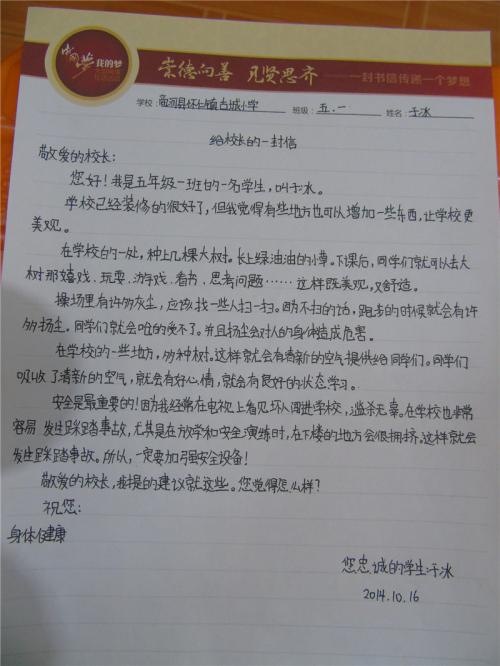 中国梦 我的梦
崇德向善 见贤思齐 ——一封书信传递一个梦想
学校: 商河县怀仁镇古城小学 班级: 五.一 姓名: 于冰
给校长的一封信
敬爱的校长:
您好!我是五年级一班的一名学生,叫于冰。
学校已经装修的很好了,但我觉得有些地方也可以增加一些东西,让学校更
美观。
在学校的一处,种上几棵大树。长上绿油油的小草。下课后,同学们就可以去大
树那嬉戏、玩耍、游戏、看书、思考问题……这样既美观,又舒适。
操场里有许多灰尘,应该找一些人扫一扫。因为不扫的话,跑步的时候就会有许
多扬尘。同学们就会呛的受不了。并且扬尘会对人的身体造成危害。
在学校的一些地方,多种树。这样就会有清新的空气提供给同学们。同学们
吸收了清新的空气,就会有好心情,就会有良好的状态学习。
安全是最重要的!因为我经常在电视上看见坏人闯进学校,滥杀无辜。在学校也非常
容易发生踩踏事故,尤其是在放学和安全演练时,在下楼的地方会很拥挤。这样就会
发生踩踏事故。所以,一定要加强安全设备!
敬爱的校长,我提的建议就这些。您觉得怎么样?
祝您:
身体健康
您忠诚的学生:于冰
2014.10.16